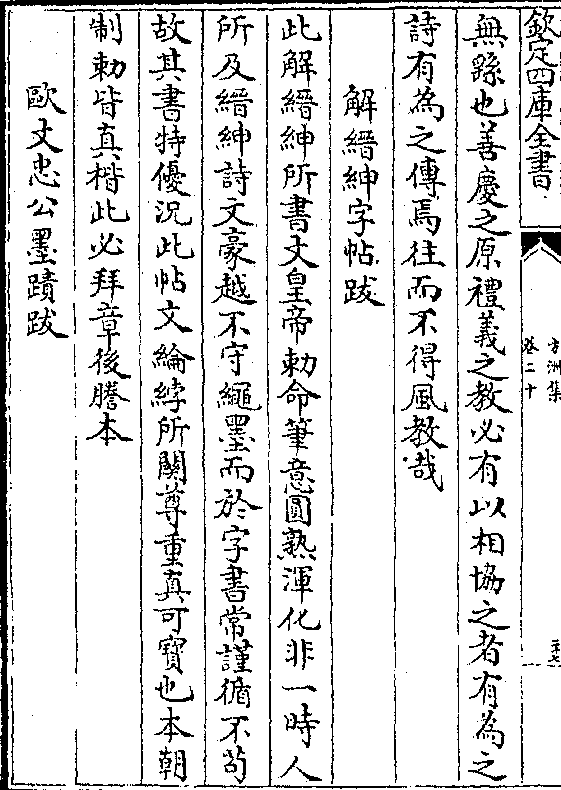 欽定四庫全書
方洲集
卷二十
無繇也善慶之原禮義之教必有以相協之者有為之
詩有為之傳焉往而不得風教哉
解縉紳字帖跋
此解縉紳所書文皇帝勅命筆意圓熟渾化非一時人
所及縉紳詩文豪越不守繩墨而於字書常謹循不苟
故其書特優況此帖文綸綍所關尊重真可寶也本朝
制勅皆真楷此必拜章後謄本
歐文忠公墨蹟跋